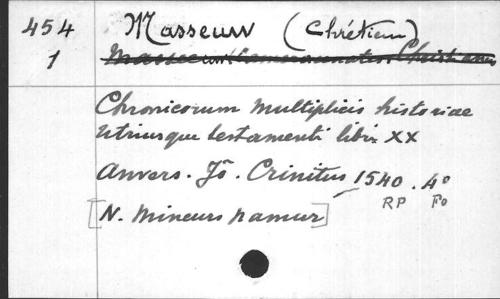 454 Masseuw (Chrétien)
1
Chronicorum multiplicis historiae
utriusque testamenti libri XX
Anvers. Jô. Crinitus 1540. 4º
RP Fo
[N. Mineurs Namur]